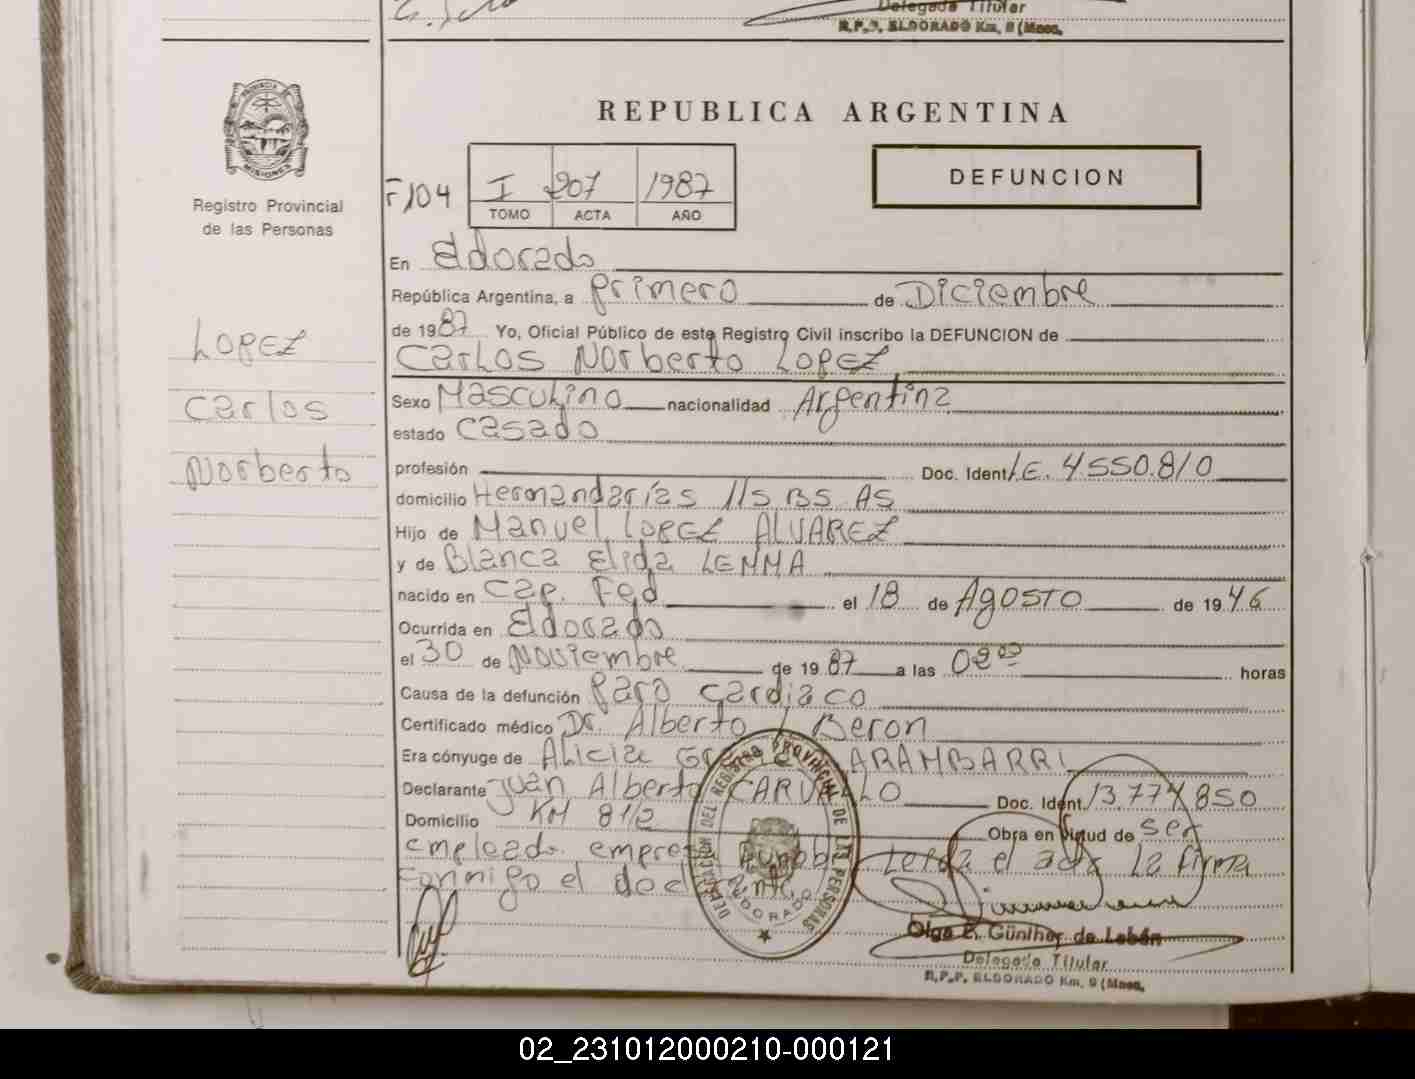 Delegada Titular
R.P.P. ELDORADO Km. 9 (Mnes.
PROVINCIA DE
MISIONES
Registro Provincial
de las Personas
REPUBLICA ARGENTINA
F104
I 207 1987
TOMO ACTA AÑO
DEFUNCION
En Eldorado
República Argentina, a primero de Diciembre
de 1987 Yo, Oficial Público de este Registro Civil inscribo la DEFUNCION de
Carlos Norberto Lopez
LOPEZ
Carlos
Norberto
Sexo Masculino nacionalidad Argentina
estado casado
profesión Doc. Ident. L.E. 4.550.810
domicilio Hernandarias 115 BS AS
Hijo de Manuel LOPEZ ALVAREZ
y de Blanca Elida LEMMA
nacido en Cap. Fed el 18 de Agosto de 1946
Ocurrida en Eldorado
el 30 de Noviembre de 1987 a las 02 00 horas
Causa de la defunción paro cardiaco
Certificado médico Dr. Alberto J Beron
Era cónyuge de Alicia ARAMBARRI
Declarante Juan Alberto CARVALLO Doc. Ident. 13.774.850
Domicilio KM 8 1/2 Obra en virtud de ser
empleado empresa Leida el acta la firma
conmigo el declarante
DELEGACION DEL REGISTRO PROVINCIAL DE LAS PERSONAS
ELDORADO
Olga E. Günther de Lebán
Delegada Titular
R.P.P. ELDORADO Km. 9 (Mnes.
02_231012000210-000121